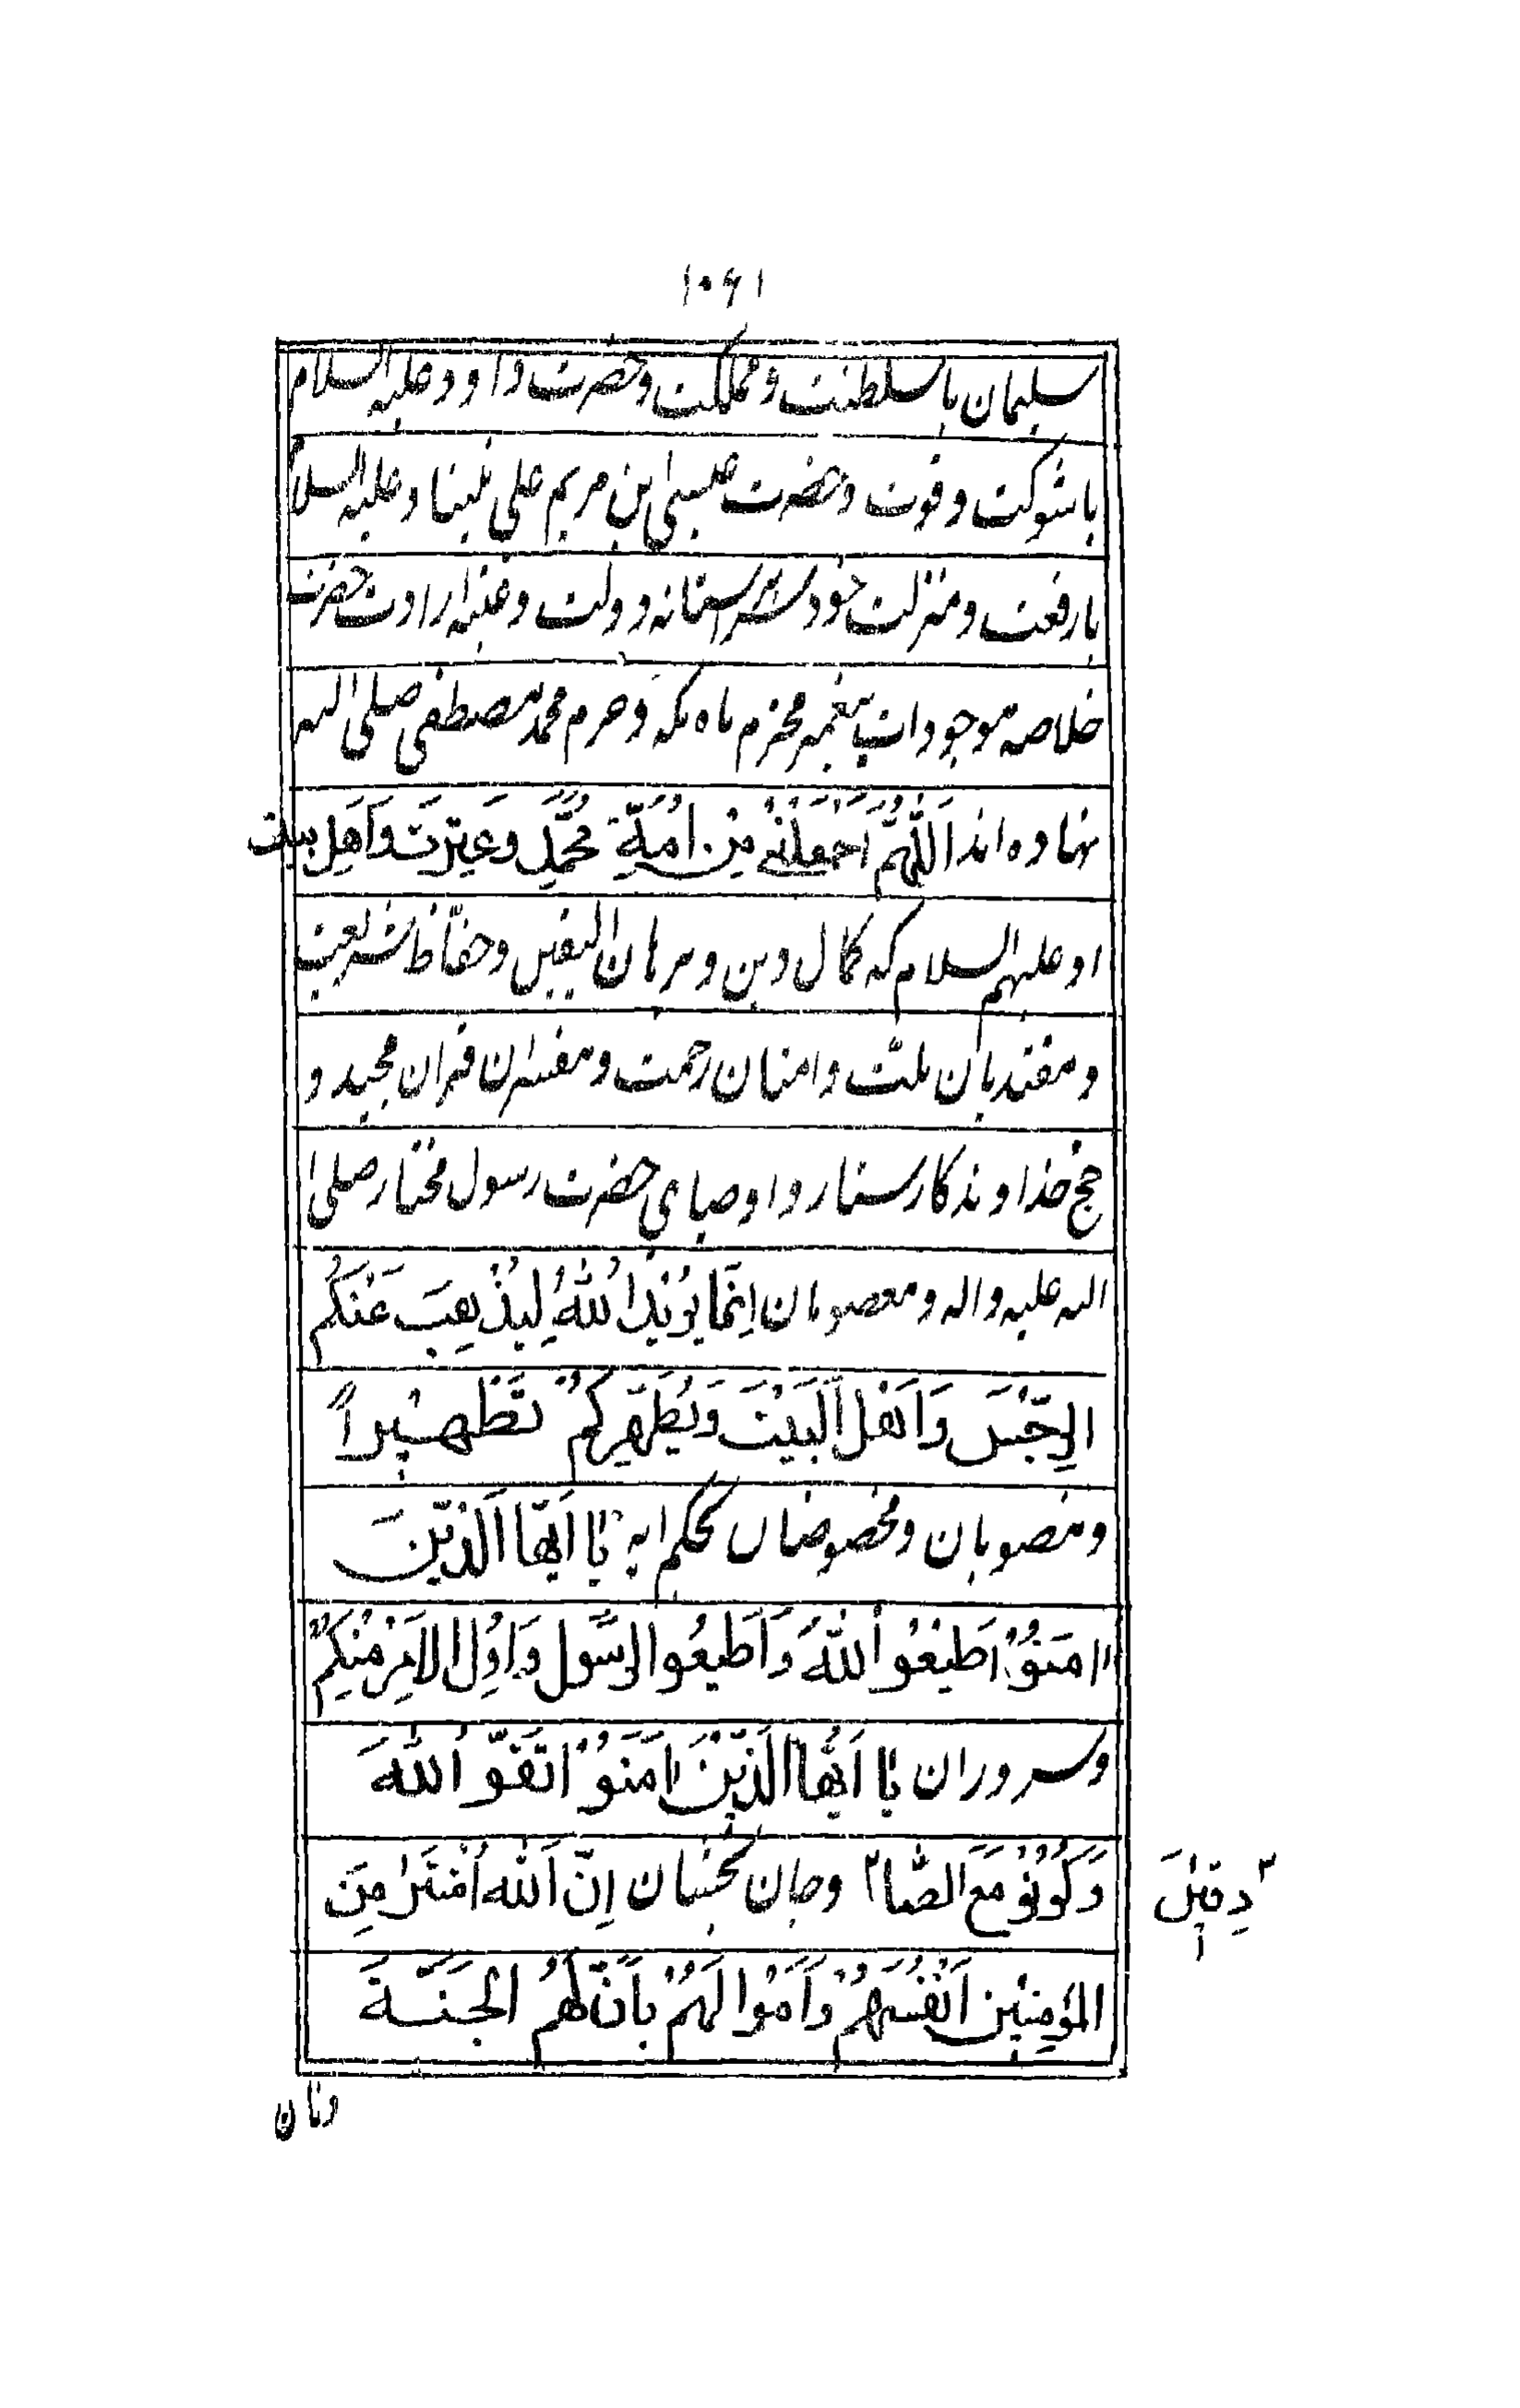 ١٠٤١
سلیمان با سلطنت و مملکت و حضرت داود علیه السلام
با شوکت و قوت و حضرت عیسی ابن مریم علی نبینا و علیه السلا
با رفعت و منزلت خود سر بر استانه دولت و عتبه ارادت حضرت
خلاصه موجودات پیغمبر محترم ماه مکه و حرم محمد مصطفی صلی الله
نهاده اند اَللّهُمَّ اَجْعَلْنٖی مِنْ اُمَّةِ مُحَمَّدٍ وَعِتْرَتِ وَاَهِل بیت
او علیهم السلام که کمال دین و برهان الیقین و حفّاظ شریعت
و مقتدیان ملّت و امنان رحمت و مفسران قران مجید و
حجج خداوندکار ستار و اوصیای حضرت رسول مختار صلی ا
الله علیه و اله و معصومان اِنَّمَا یُرٖیدُ اللّٰهُ لِیُذْهِبَ عَنْکُمُ
الِرّجْسَ وَاَهْلَ اَلْبَیْتَ وَیُطَهِّرِکُمْ تَطْهٖیٖراً
و منصوبان و مخصوصان بحکم ایه یٰا اَیّهَا اَلَّذیٖنَ
اامَنَوُ اَطٖیْعُوْ اللّٰهَ وَاَطٖیعُو الرَسّوُل وَاوُلِ الاَمِرْ مِنْکُمْ
و سروران یٰا اَیُهَا الَّذٖیْنَ اٰمَنَوُ اتَقَوُّ اللّٰهَ
وَکُوُنُوْ مَعَ الصّٰا٢ و جان بخشان اِنّ اَللّٰهَ اُشْتَرٰ مِنَ
٢ دِقیٖنَ
المُؤمِنٖیْن اَنْفُسَهُمْ وَاَمَوْالَهُمْ بِاَنَّ لَهُمُ اَلجَنَّةَ
ونان